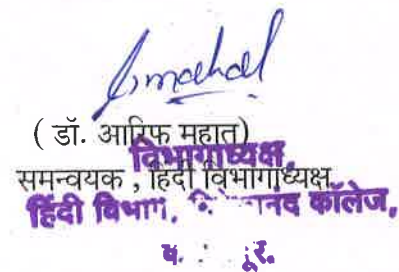 ( डॉ. आरिफ महात)
विभागाध्यक्ष,
समन्वयक , हिंदी विभागाध्यक्ष
हिंदी विभाग, कॉलेज,